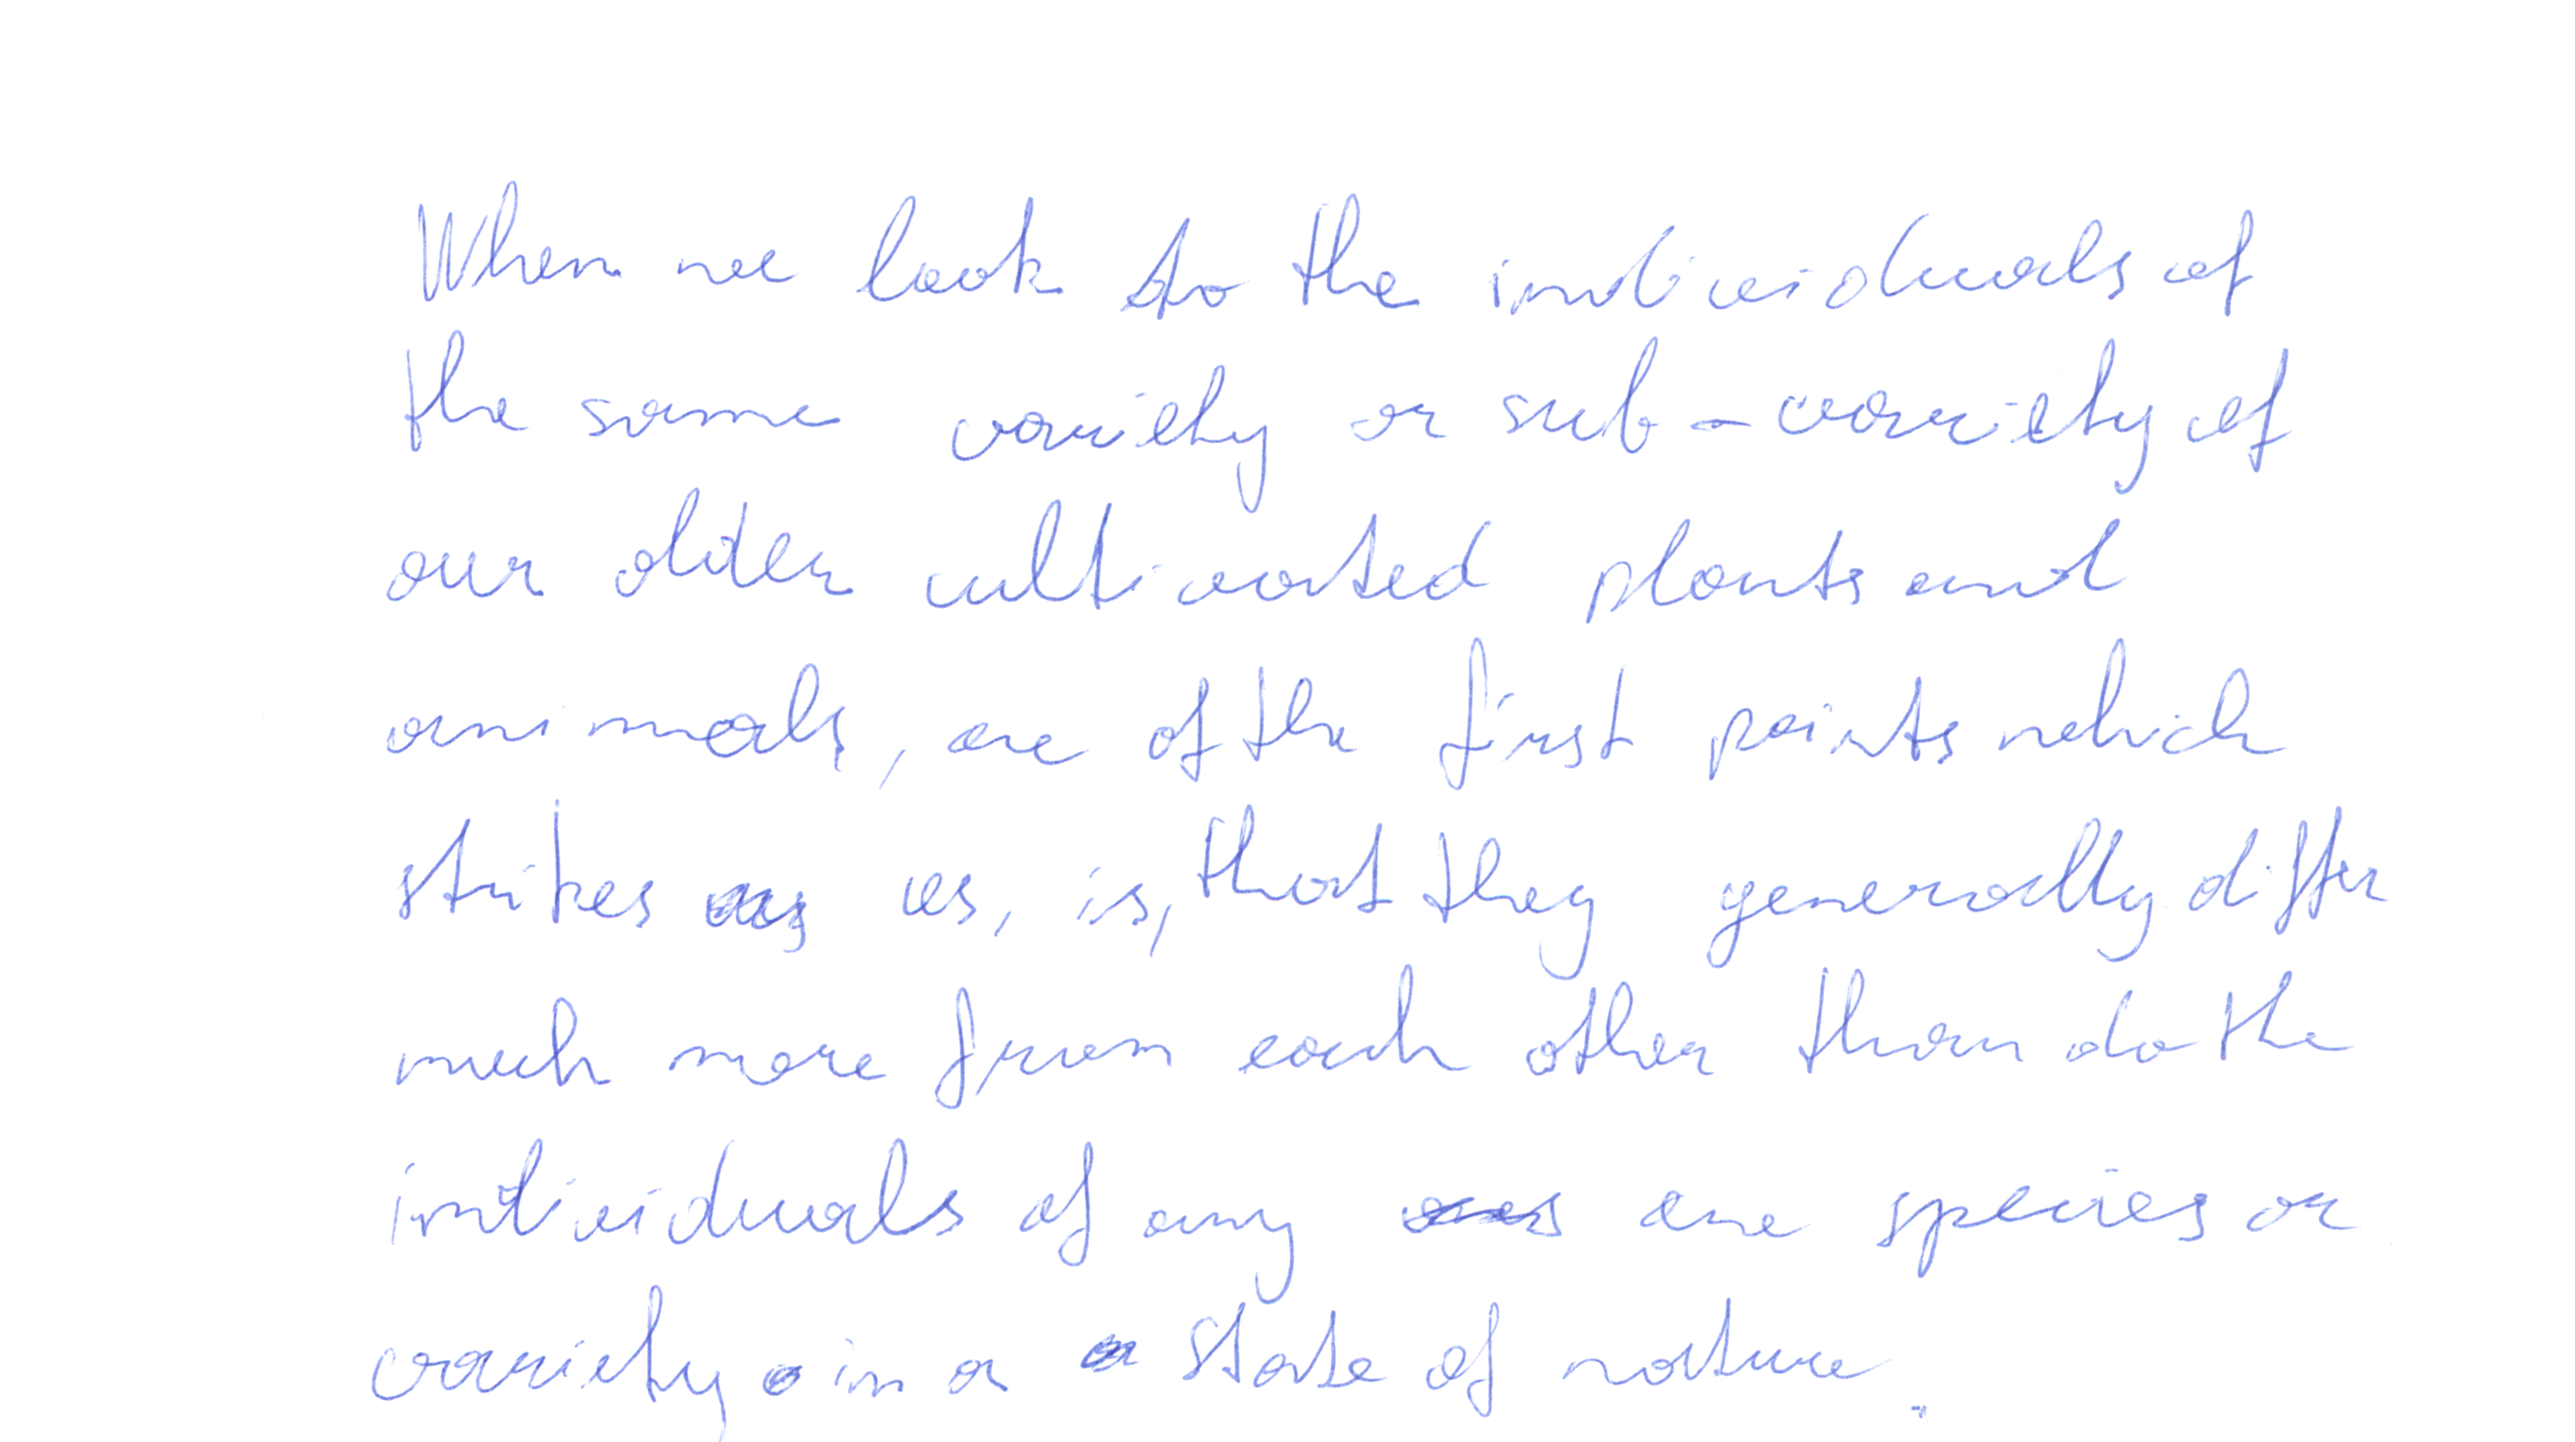 When we look to the individuals of
the same variety or sub-variety of
our older cultivated plants and
animals, one of the first points which
strikes us, is, that they generally differ
much more from each other than do the
individuals of any one species or
variety in a state of nature.